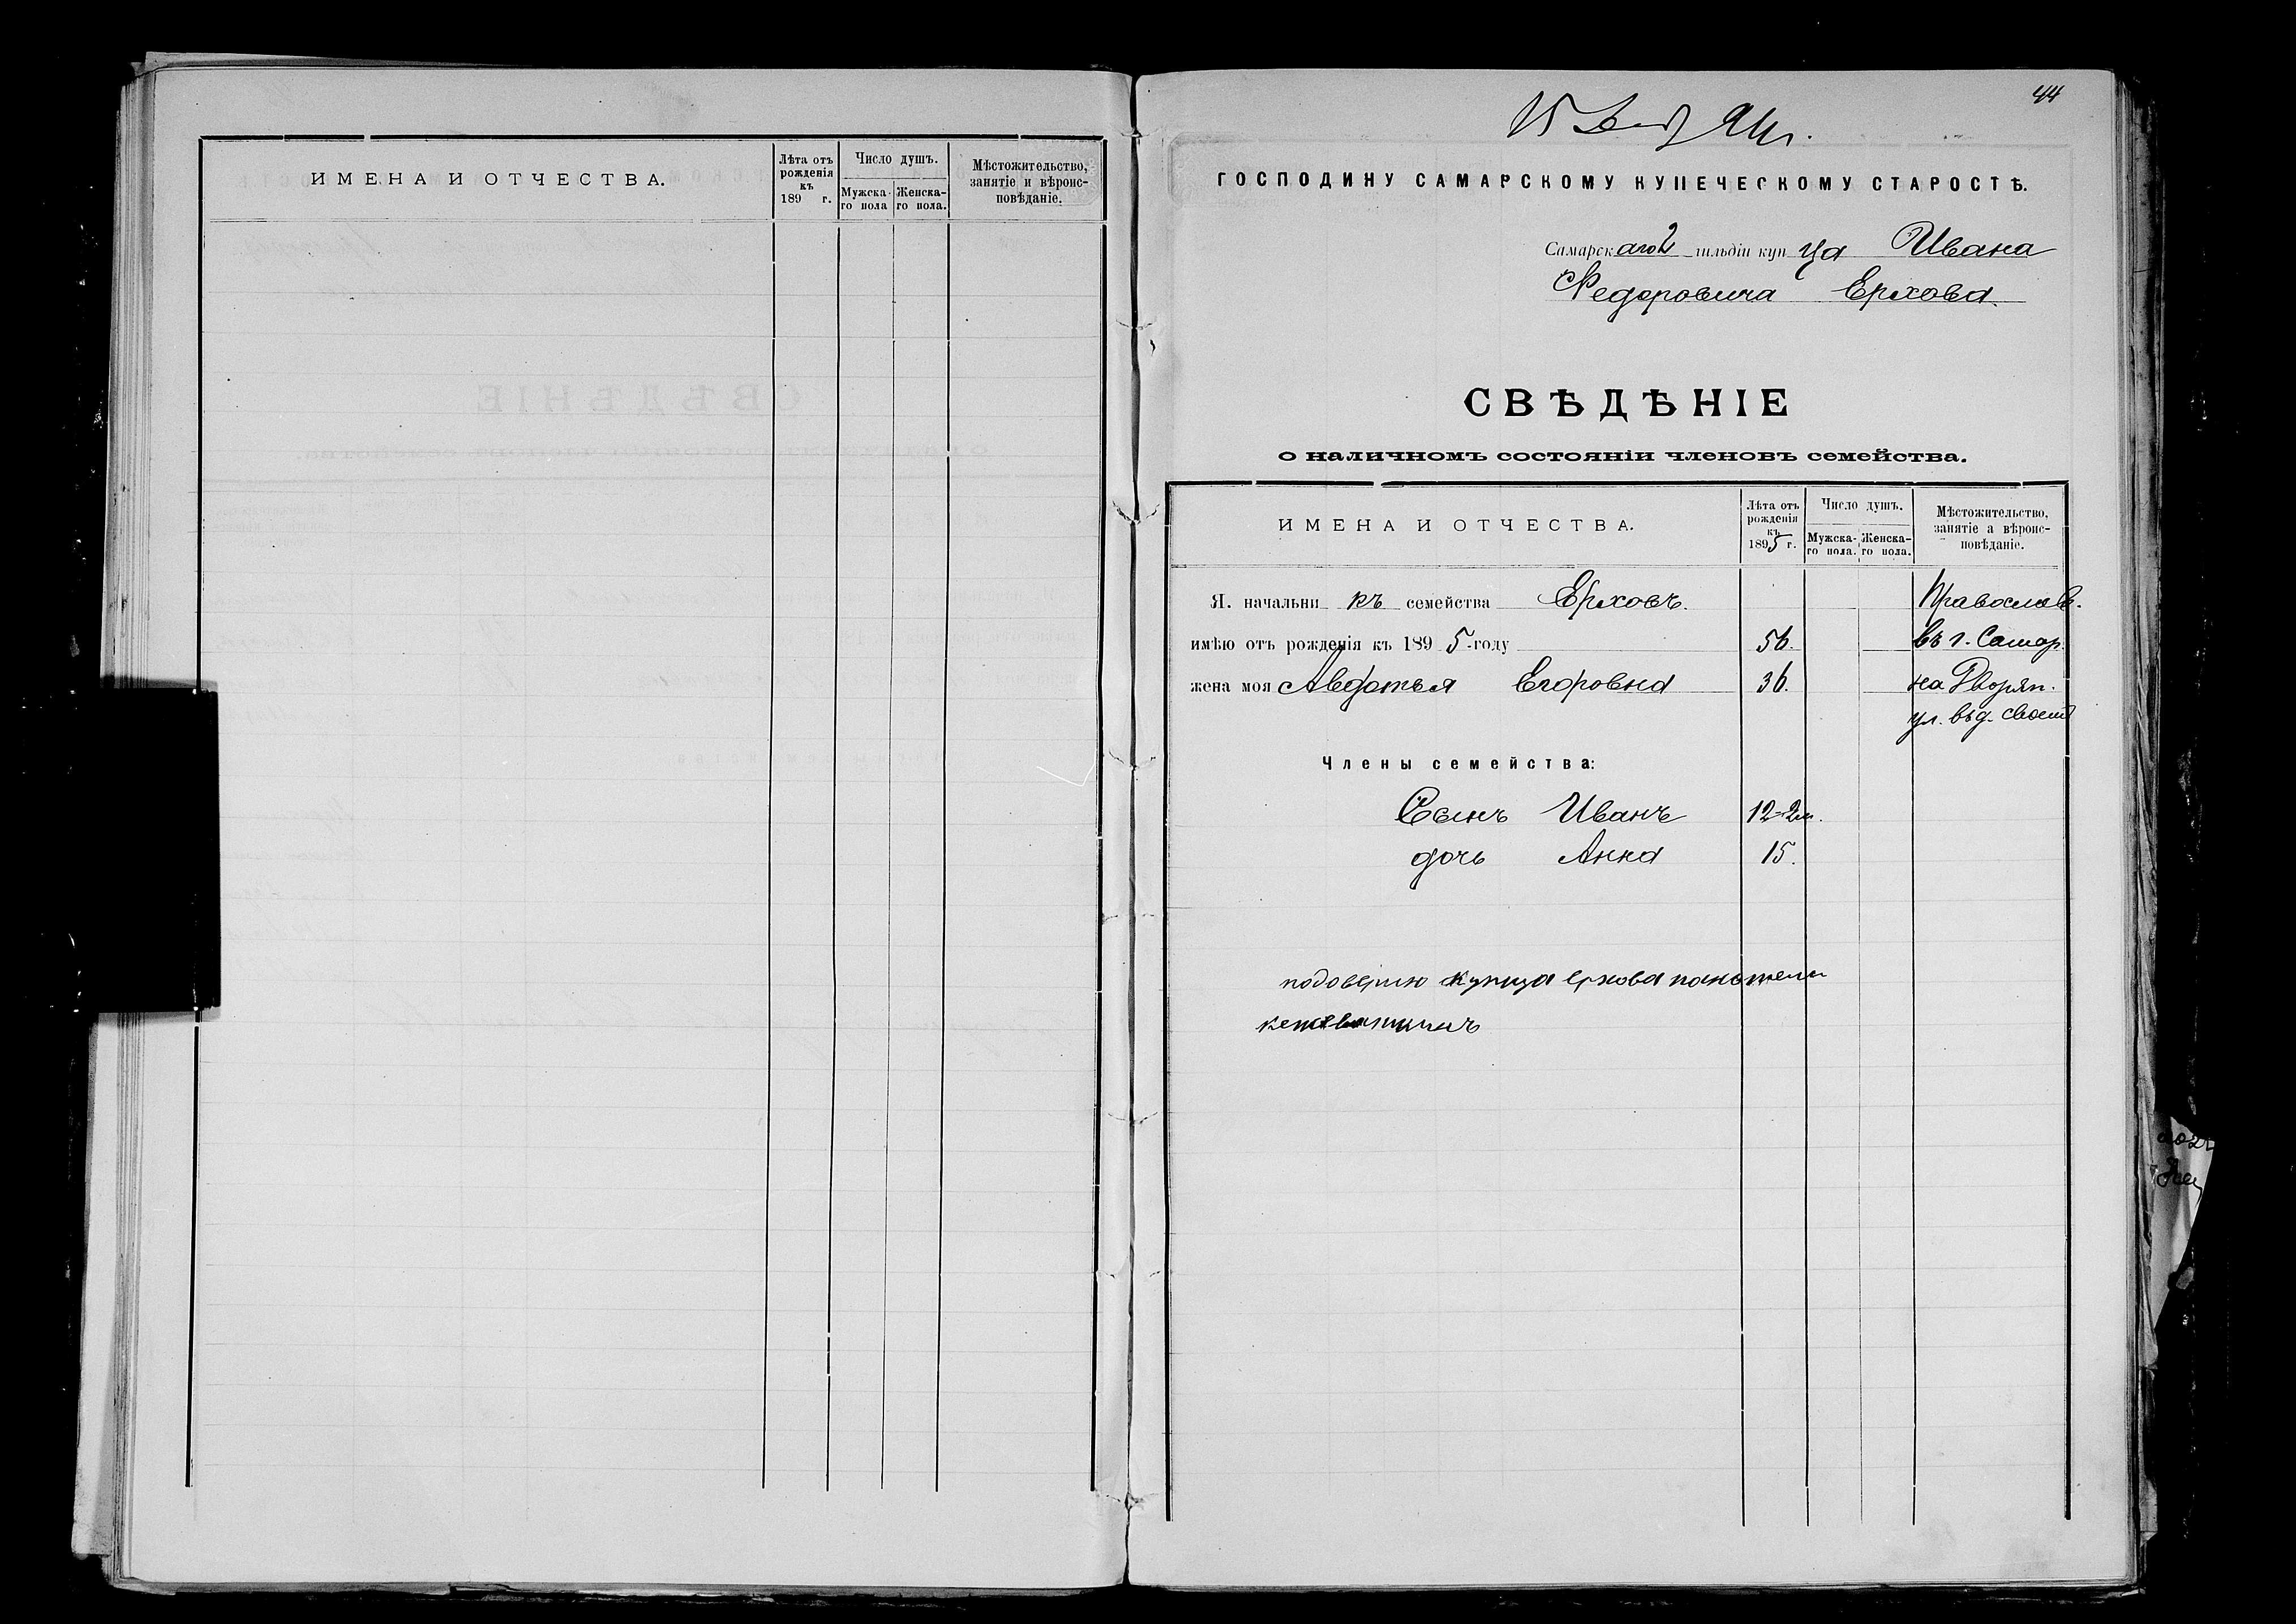 ИМЕНА И ОТЧЕСТВА.
Лѣта отъ
рожденія
къ
189 г.
Число душъ.
Мужска-
го пола
Женска-
го пола.
Мѣстожительство,
занятіе и вѣроис-
повѣданіе.
44
15
ГОСПОДИНУ САМАРСКОМУ КУПЕЧЕСКОМУ СТАРОСТѢ.
Самарскаго 2 гильдіи купца Ивана
Федоровича Ерхова.
СВѢДѢНІЕ
о наличномъ состояніи членовъ семейства.
ИМЕНА И ОТЧЕСТВА.
Лѣта отъ
рожденія
къ
1895 г.
Число душъ.
Мужска-
го пола.
Женска-
го пола.
Мѣстожительство,
занятіе а вѣроис-
повѣданіе.
Я. начальникъ семейства Ерховъ. Православ.
имѣю отъ рожденія къ 1895-году 56. въ г. Самар.
жена моя Авдотья Егоровна 36. на Дворян.
ул. въ д. своемъ
Члены семейства:
Сынъ Иванъ 12-2м.
дочь Анна 15.
подоверию купца ерхова